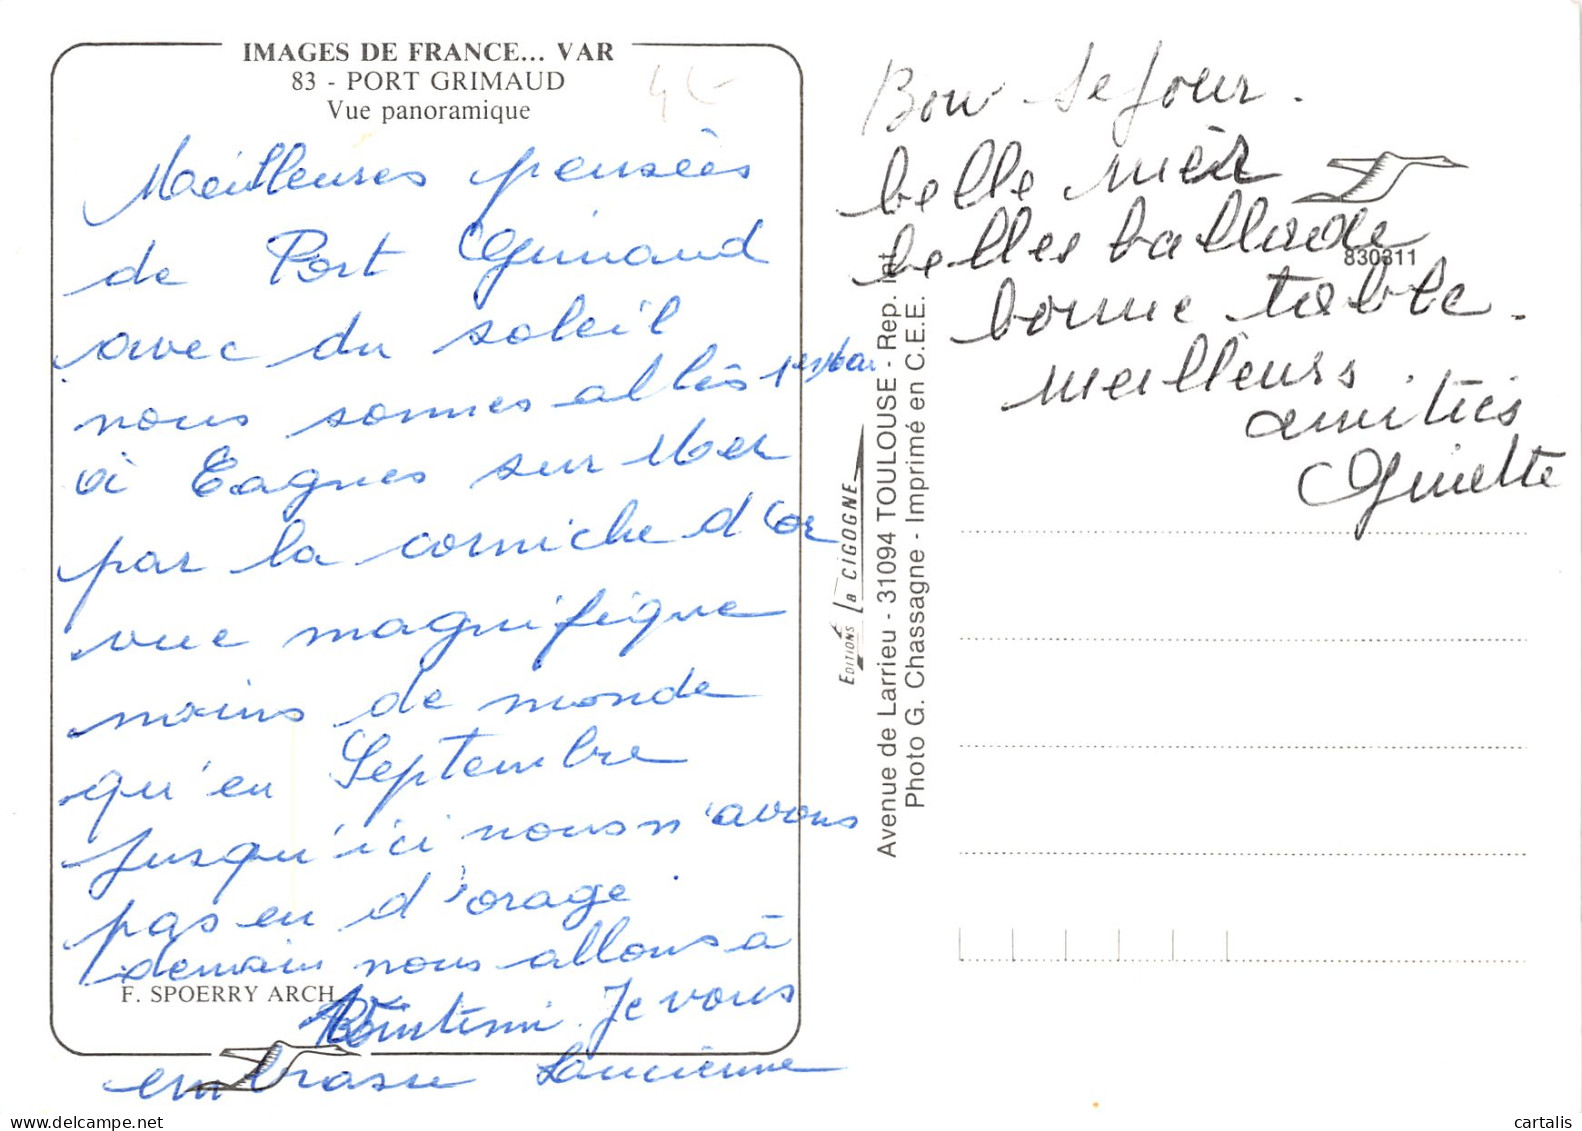 IMAGES DE FRANCE... VAR
83 - PORT GRIMAUD
Vue panoramique
4€
Meilleuses pensées
de Port Grimaud
avec du soleil
nous sommes allés
à Cagnes sur Mer
par la corniche d'or
vue magnifique
moins de monde
qu'en Septembre
jusqu'ici nous n'avons
pas eu d'orage.
demain nous allons à
F. SPOERRY ARCH.
Je vous
embrasse Lucienne
EDITIONS La CIGOGNE
Avenue de Larrieu - 31094 TOULOUSE - Rep. Int.
Photo G. Chassagne - Imprimé en C.E.E.
Bon sejour.
belle mèr
belles ballade
830311
bonne table.
meilleurs.
amitiés
Ginette
cartalis.delcampe.net